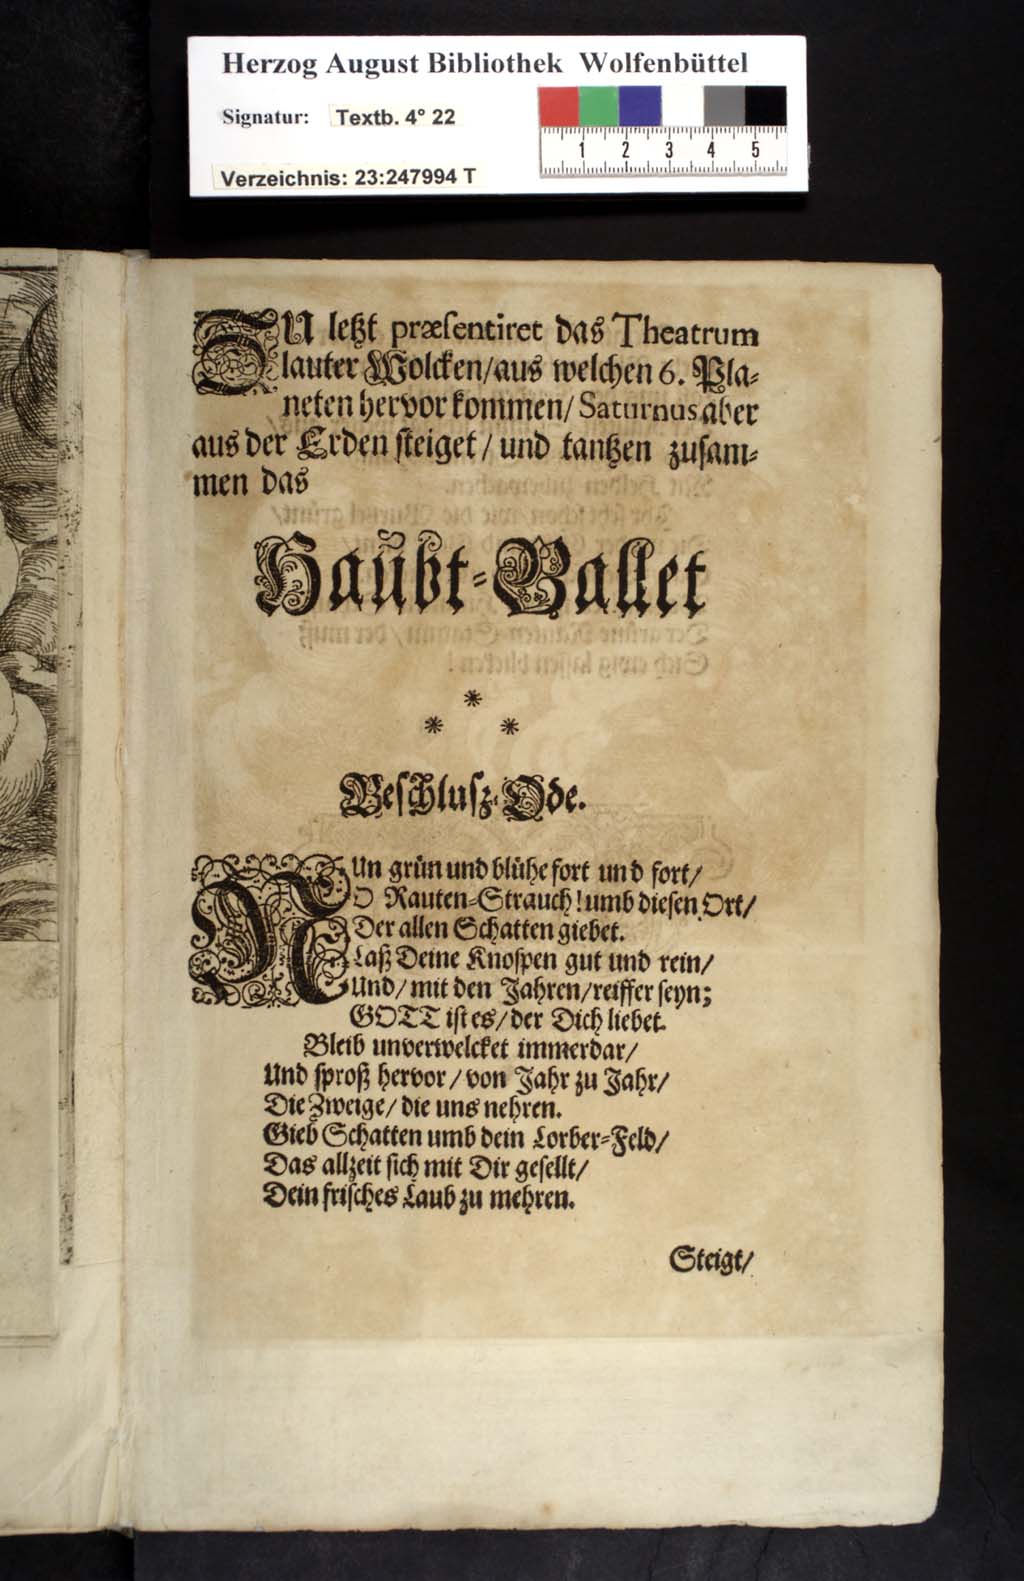 Herzog August Bibliothek Wolfenbüttel
Signatur: Textb. 4° 22
1 2 3 4 5
Verzeichnis: 23:247994 T
ZU letzt præſentiret das Theatrum
lauter Wolcken/aus welchen 6. Pla⸗
neten hervor kommen/ Saturnus aber
aus der Erden ſteiget/ und tantzen zuſam⸗
men das
Haŭbt⸗Ballet
* * *
Beſchluſz⸗Ode.
NUn grün und blühe fort und fort/
O Rauten⸗Strauch! umb dieſen Ort/
Der allen Schatten giebet.
Laß Deine Knoſpen gut und rein/
Und/ mit den Jahren/ reiffer ſeyn;
GOTT iſt es/ der Dich liebet.
Bleib unverwelcket immerdar/
Und ſproß hervor/ von Jahr zu Jahr/
Die Zweige/ die uns nehren.
Gieb Schatten umb dein Lorber⸗Feld/
Das allzeit ſich mit Dir geſellt/
Dein friſches Laub zu mehren.
Steigt/